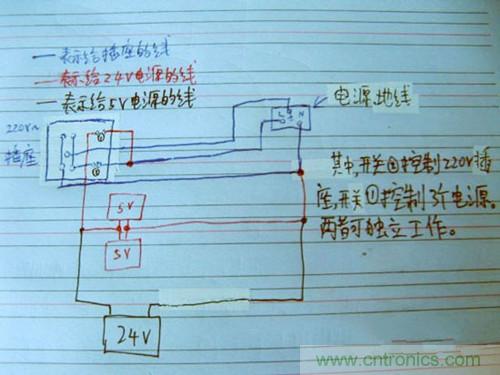 一表示给插座的线
一表示给24V电源的线
一表示给5V电源的线
220V~
插座
电源地线
L
N
其中,开关②控制220V插
座,开关①控制3个电源。
两者可独立工作。
5V
5V
24V
电子元件技术网
www.cntronics.com